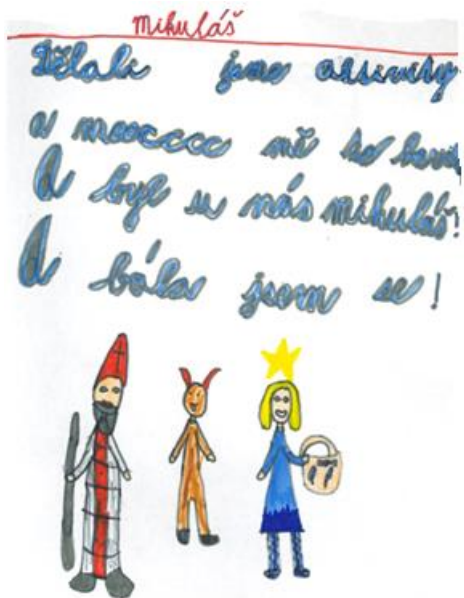 Mikuláš
Dělali jsme aktivity
a moocccc mě to
A byl u nás mikuláš!
A bála jsem se!